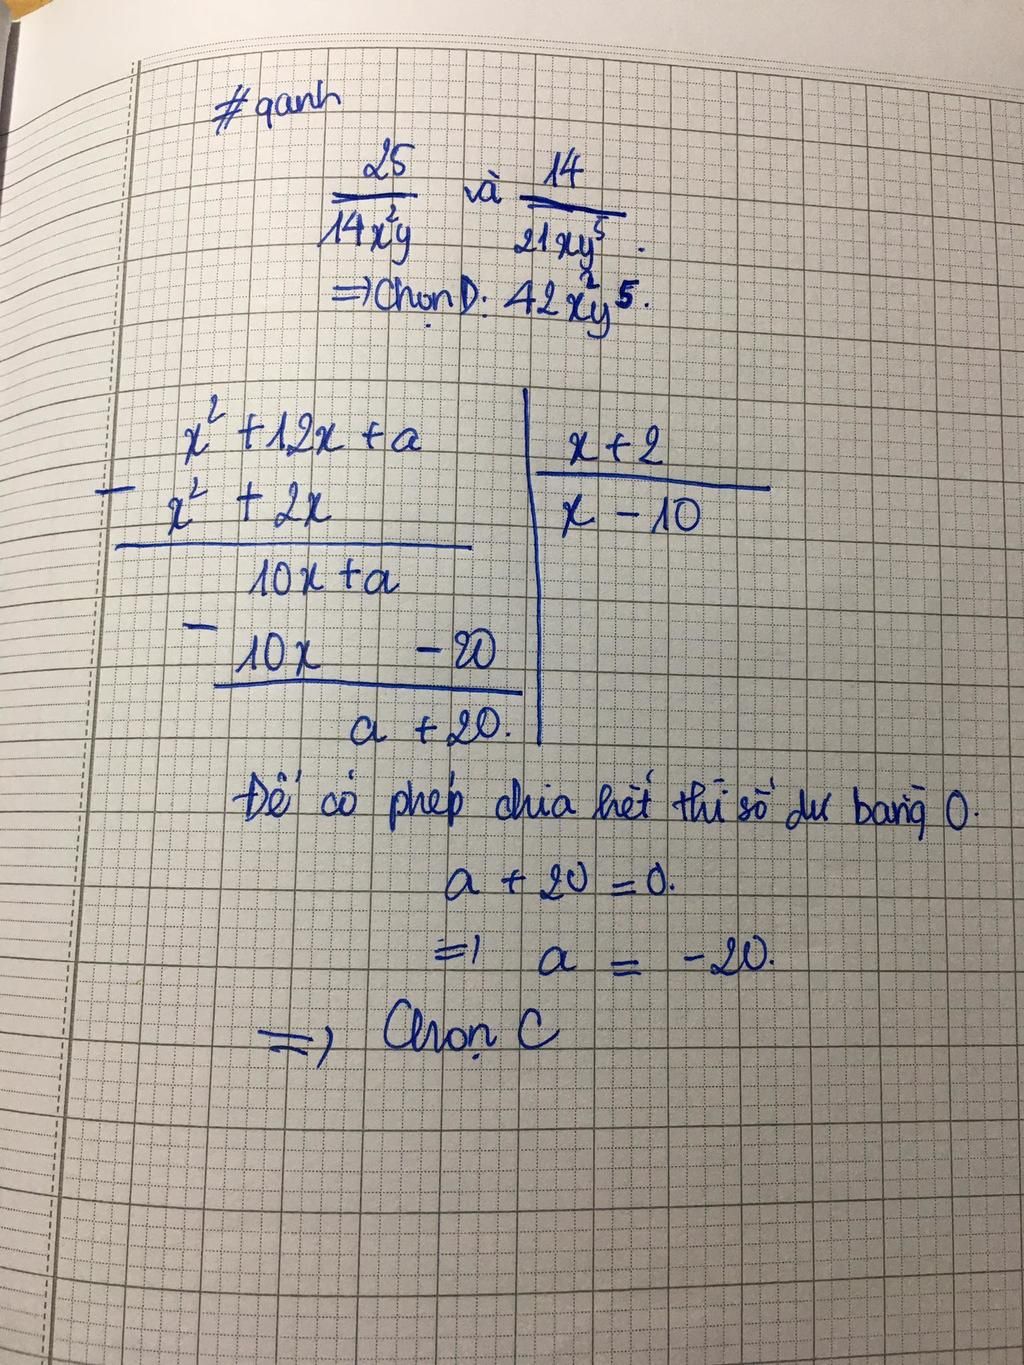 #qanh
25/14x²y và 14/21xy⁵.
=> Chọn D: 42x²y⁵.
x² + 12x + a | x + 2
- x² + 2x | x - 10
10x + a
- 10x - 20
a + 20.
Để có phép chia hết thì số dư bằng 0.
a + 20 = 0.
=> a = -20.
=> Chọn C